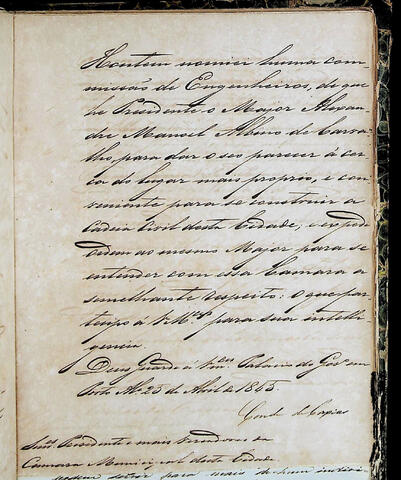 Hontem nomiei huma com
missão de Engenheiros, de que
he Presidente o Major Alexan
dre Manoel Albino de Carva
lho, para dar o seu parecer á cer
ca do lugar mais proprio, e con
veniente para se construir a
Cadeia Civil desta Cidade; e expedi
Ordem ao mesmo Major para se
entender com essa Camara a
semelhante respeito: O que par
tecipo á V.Mces para sua intelli
gencia.
Deos Guarde á V.mces Palacio do Gov. em
Porto Al. 25 de Abril de 1845.
Conde de Caxias
Snrs. Presidente e mais Vereadores da
Camara Municipal desta Cidade
para mais